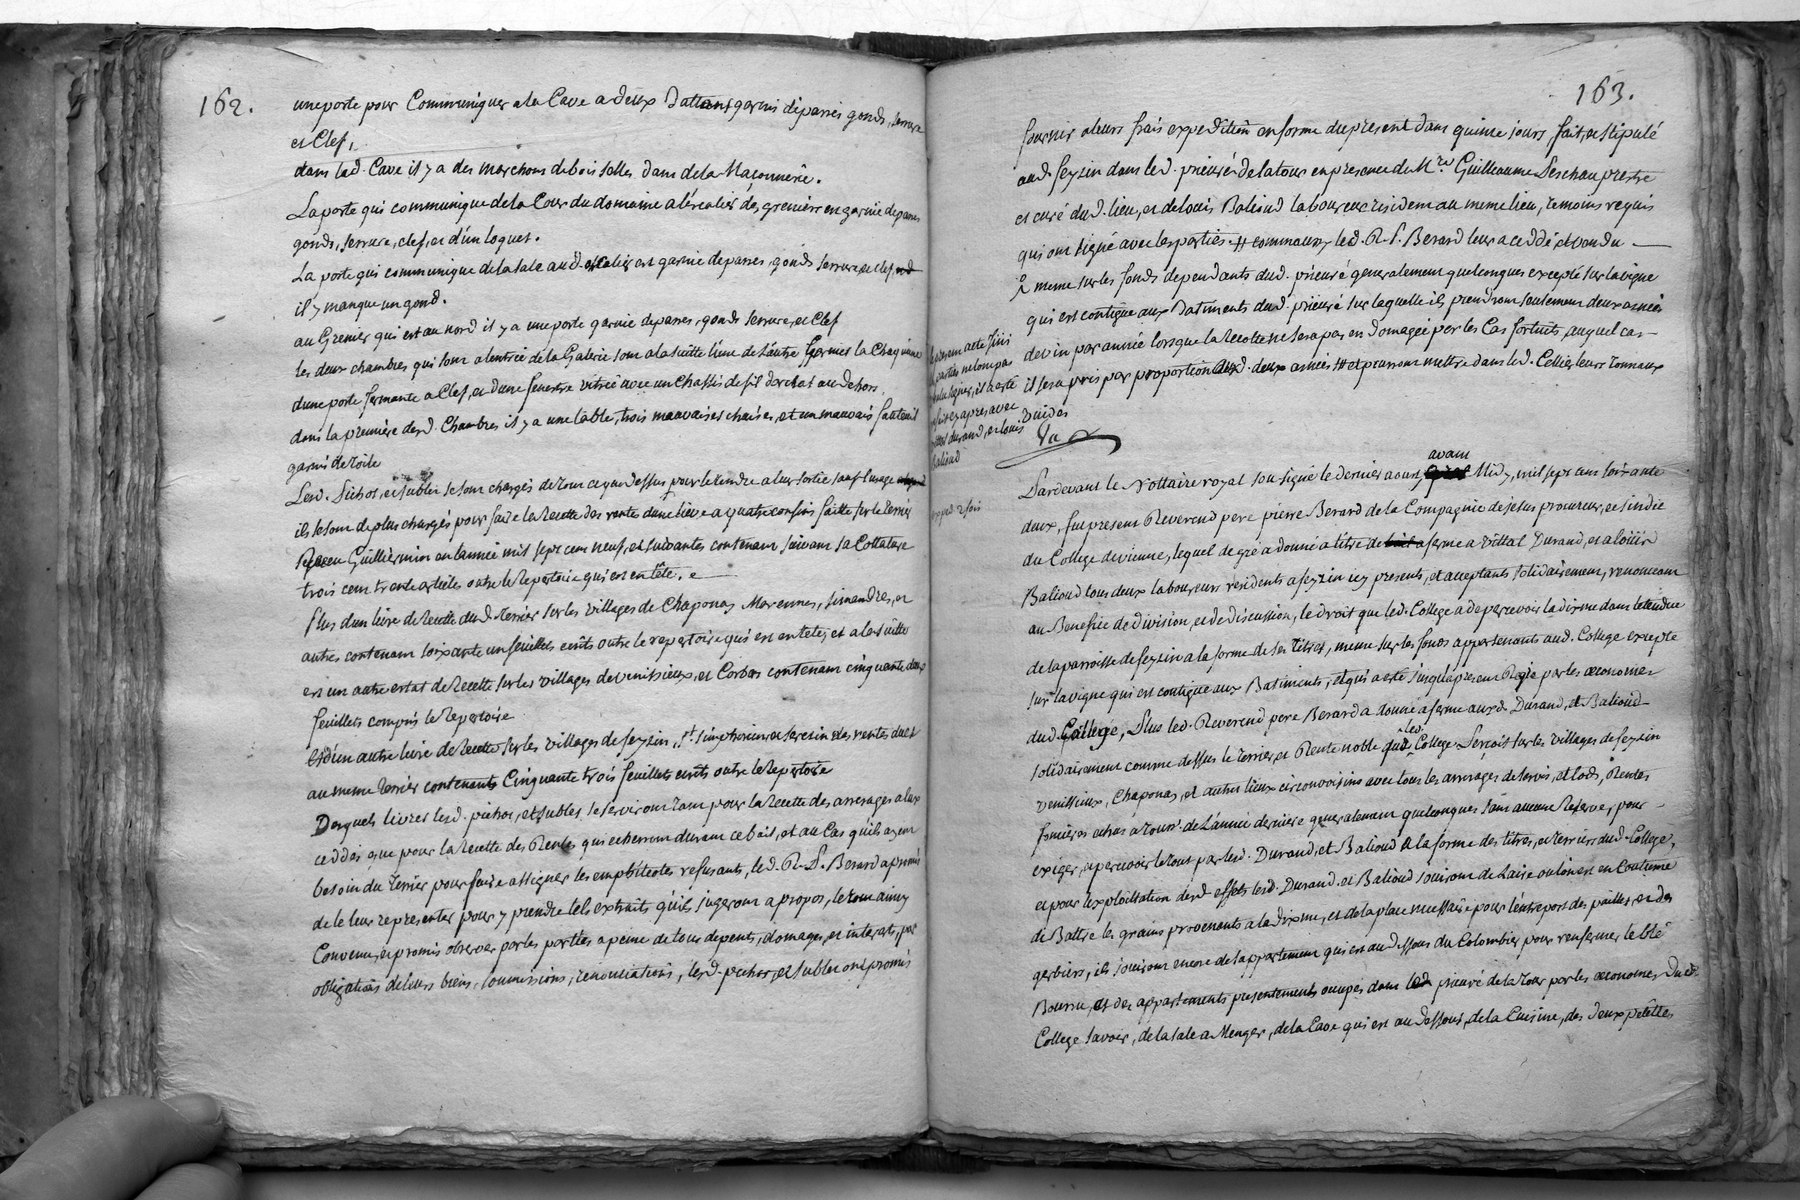 162.
une porte pour Communiquer a la Cave a deux battans garnis de parres gonds, serrure
et Clef,
dans lad. Cave il y a des marchons de bois salles dans de la Maçonnerie.
La porte qui communique de la Cour du domaine a l'escalier des greniers en garnie de parres
gonds, serrure, clef, et d'un loquet.
La porte qui communique de la sale aud. escalier est garnie de parres, gonds serrure, et clef
il y manque un gond.
au Grenier qui est au nord il y a une porte garnie de parres, gonds serrure, et Clef
les deux chambres qui sont a l'entrée de la Galerie sont a la suitte l'une de l'autre garnies la Chaqu'une
d'une porte fermante a Clef, et d'une fenestre vitrée avec un Chassis de fil d'archat au dehors
dans la premiere desd. Chambres il y a une table, trois mauvaises chaises, et un mauvais fauteuil
garni de toile
Lesd. Pichot, et sublet se sont chargés de tout ce que dessus pour le rendre a leur sortie sauf l'usage
ils se sont de plus chargés pour faire la Recette des rente d'une lieve a quatre confins faitte sur le terrier
Guilliermin en l'année mil sept cent neuf, et suivantes contenant suivant sa Cottature
trois cent trente articles outre le Repertoire qui est en tête.
Plus d'un livre de recette dud. terrier sur les villages de Chaponay Marennes, simandres, et
autres contenant soixante un feuillets ecrits outre le repertoire qui est en tete; et a la suitte
est un autre estat de Recette sur les villages de venissieux, et Corbas contenant cinquante deux
feuillets compris le Repertoire
Et d'un autre livre de Recette sur les villages de feyzin, St. simphorien et seresin des rentes dues
au meme terrier contenants Cinquante trois feuillets ecrits outre le Repertoire
Desquels livres lesd. pichot, et sublet, se serviront tant pour la Recette des arrerages a eux
ceddés que pour la Recette des Rentes qui echerront durant ce bail, et au Cas qu'ils ayent
besoin du terrier pour faire assigner les emphiteotes refusants, led. R. P. Berard a promis
de le leur representer pour y prendre tels extraits qu'ils jugeront a propos, le tout ainsy
Convenu, et promis observer par les parties a peine de tous depents, domages, et interests, par
obligations de leurs biens, soumissions, renonciations, lesd. pichot, et sublet ont promis
163.
fournir a leurs frais expedition en forme du present dans quinze jours, fait, et stipulé
aud. feyzin dans led. prieuré de la tour en presence de Mre. Guilleaume Leschau prestre
et curé dud. lieu, et de louis Balioud laboureur resident au meme lieu, temoins requis
qui ont signé avec les parties # comme aussy led. R. P. Berard leur a ceddé et vendu
meme sur les fonds dependants dud. prieuré generalement quelconques excepté sur la vigne
qui est contigüe aux batiments dud. prieuré sur laquelle ils prendront seulement deux asnées
de vin par année lorsque la Recette ne sera pas endomagée par les Cas fortuits, auquel cas
il sera pris par proportion desd. deux asnées # et pourront mettre dans led. Cellier leurs tonneaux
vuides
acte fini
parties ne l'ont pas
signer, il a esté
cy apres avec
vittal durand, et louis
balioud
exped. 2 fois
avant
Pardevant le Nottaire royal sousigné le dernier aoust Midy, mil sept cent soixante
deux, fut present Reverend pere pierre Berard de la Compagnie de jesus procureur, et sindic
du College de vienne, lequel de gré a donné a titre de ferme a vittal Durand, et a loüis
Balioud tous deux laboureurs residents a feyzin icy presents, et acceptants solidairement, renonceant
au Benefice de division, et de discussion, le droit que led. College a de percevoir la dixme dans letendue
de la parroisse de feyzin a la forme de ses titres, meme sur les fonds appartenants aud. College excepté
sur la vigne qui est contigüe aux Batiments, et qui a esté jusqu'a present Regie par les œconomes
dud. College, Plus led. Reverend pere Berard a donné a ferme auxd. Durand, et Balioud
solidairement comme dessus le terrier, et Rente noble que led. College Perçoit sur les villages de feyzin
venissieux, Chaponay, et autres lieux circonvoisins avec tous les arrerages de servis, et lods, Rentes
foncieres echus a touss. de l'année derniere generalement quelconques sans aucune Reserve, pour
exiger, et percevoir le tout par lesd. Durand, et Balioud a la forme des titres, et terriers dud. College,
et pour l'exploittation desd. effets lesd. Durand, et Balioud jouiront de l'aise ou l'on est en Coutume
de Battre les grains provenants a la dixme, et de la place necessaire pour l'entrepost des pailles, et des
gerbiers, ils jouiront encore de l'appartement qui est au dessous du Colombier pour renfermer le blé
Bourru, et des appartements presentement ocupés dans led. prieuré de la tour par les œconomes dud.
College savoir, de la sale a Manger, de la Cave qui est au dessous, de la Cuisine, des deux petittes